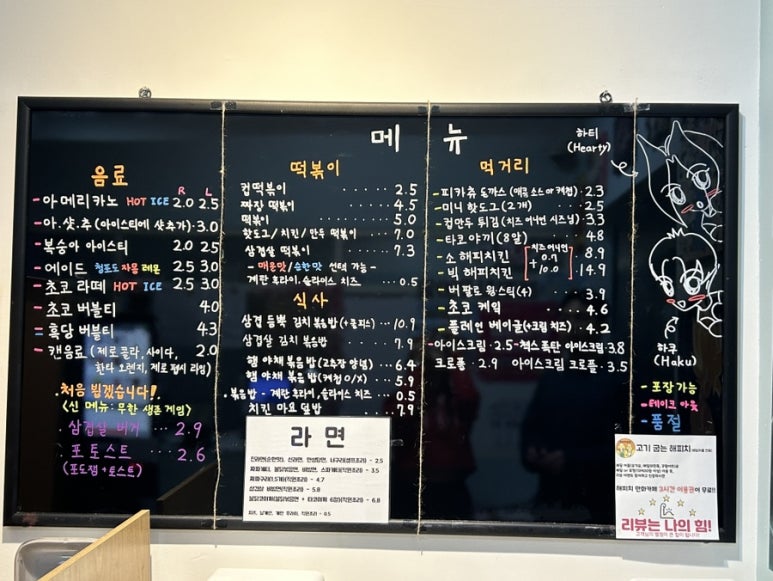 메 뉴
음료
R L
- 아메리카노 HOT ICE 2.0 2.5
- 아.샷.추 (아이스티에 샷추가) · 3.0
- 복숭아 아이스티 2.0 2.5
- 에이드 청포도 자몽 레몬 2.5 3.0
- 초코 라떼 HOT ICE 2.5 3.0
- 초코 버블티 4.0
= 흑당 버블티 4.3
- 캔음료 (제로콜라, 사이다, 2.0
환타 오렌지, 제로 펩시 라임)
처음 뵙겠습니다!
<신 메뉴: 무한 생존 게임>
삼겹살 버거 - 2.9
포토스트 - 2.6
(포도잼+토스트)
떡볶이
컵떡볶이 ····· 2.5
짜장 떡볶이 ···· 4.5
떡볶이 ···· 5.0
핫도그/치킨/만두 떡볶이 ···· 7.0
삼겹살 떡볶이 ···· 7.3
- 매운맛/순한맛 선택 가능 -
계란 후라이, 슬라이스 치즈 ··· 0.5
식사
삼겹 듬뿍 김치 볶음밥 ·· 10.9
삼겹살 김치 볶음밥 ··· 7.9
햄 야채 볶음밥 (고추장 양념) ·· 6.4
햄 야채 볶음 밥 (케첩 O/X) ·· 5.9
· 볶음밥 - 계란 후라이, 슬라이스 치즈 ·· 0.5
치킨 마요 덮밥 ·· 7.9
라 면
- 2.5
- 3.5
- 4.7
- 5.8
- 6.8
- 0.5
먹거리
- 피카츄 돈까스 · 2.3
- 미니 핫도그 (2개) ··· 2.5
- 컵만두 튀김 (치즈 어니언 시즈닝) · 3.3
- 타코야끼 (8알) ·· 4.8
- 소 해피치킨 8.9
- 빅 해피치킨 14.9
치즈 어니언
- 버팔로 윙스틱(4) ·· 3.9
- 초코 케익 ·· 4.6
- 플레인 베이글 (+크림 치즈) · 4.2
- 아이스크림 · 2.5 - 쵸코 폭탄 아이스크림 · 3.8
크로플 · 2.9 아이스크림 크로플 · 3.5
하티
(Hearty)
하쿠
(Haku)
- 포장 가능
- 테이크 아웃
- 품절
고기 굽는 해피치
해피치 만화카페 3시간 이용권이 무료!!
리뷰는 나의 힘!